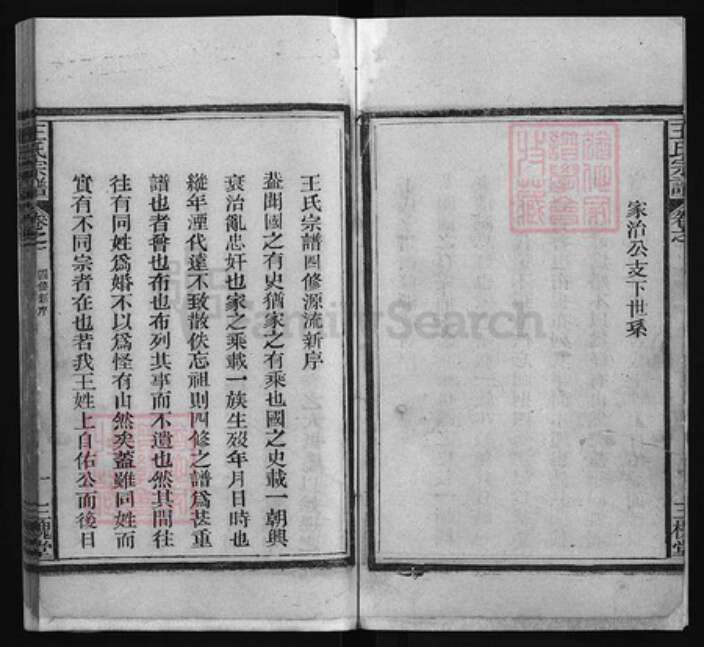 王氏宗譜 卷之
家治公支下世系
三槐堂
王氏宗譜四修源流新序
蓋聞國之有史猶家之有乘也國之史載一朝興
衰治亂忠奸也家之乘載一族生殁年月日時也
縱年湮代遠不致散佚忘祖則四修之譜爲甚重
譜也者普也布也布列其事而不遺也然其間往
往有同姓爲婚不以爲怪有由然矣蓋雖同姓而
實有不同宗者在也若我王姓上自佑公而後日
王氏宗譜 卷之一 四修新序 一 三槐堂
FamilySearch